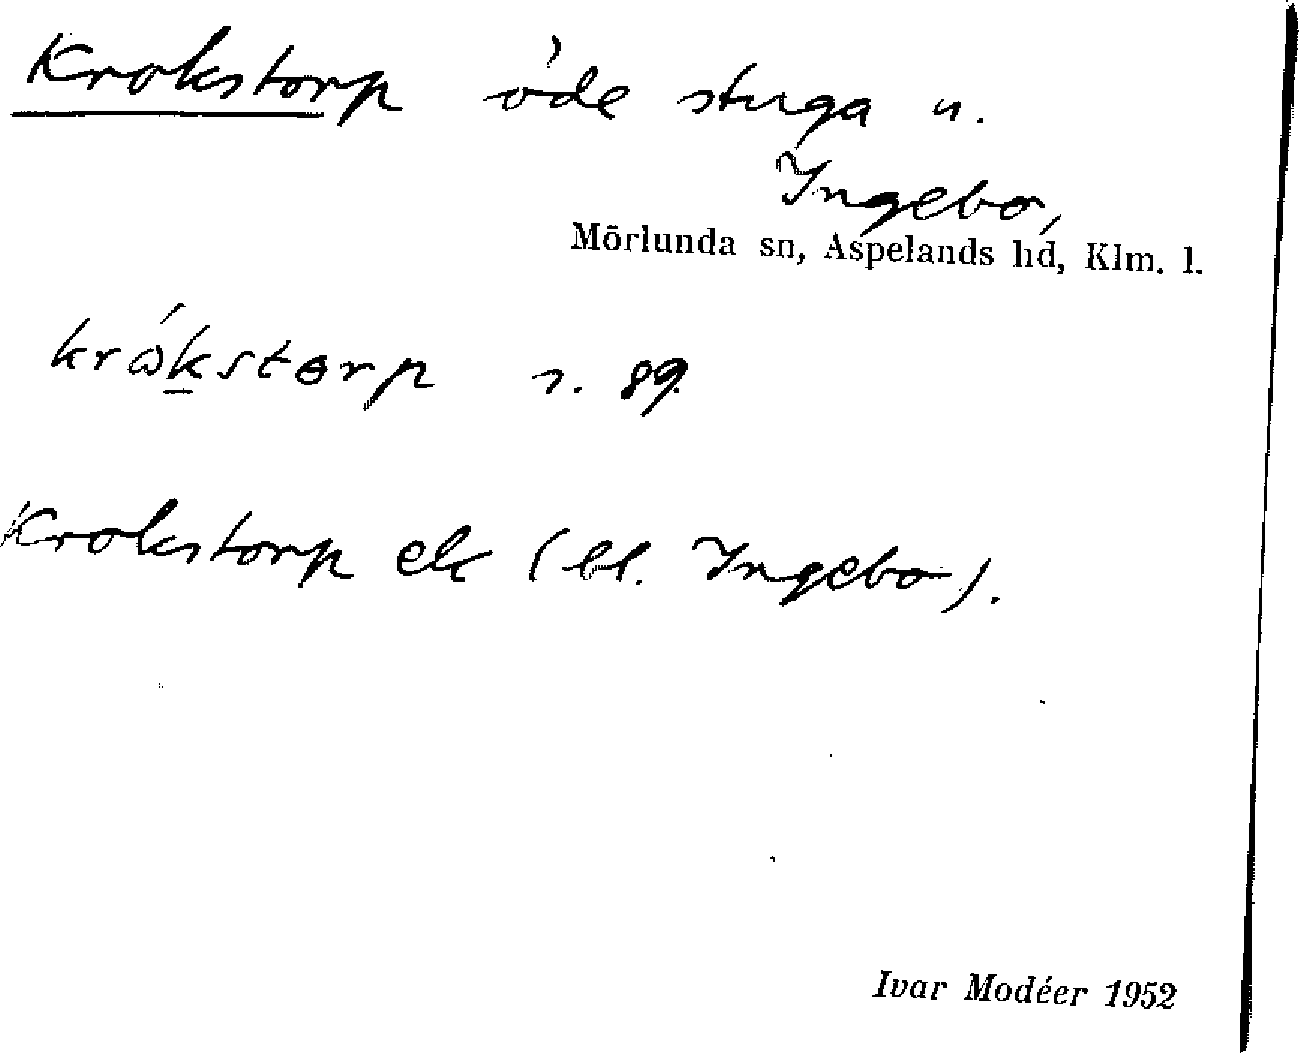 Krokstorp öde stuga u.
Ingebo,
Mörlunda sn, Aspelands hd, Klm. l.
krókstɵrp s. 89.
Krokstorp ek (bl. Ingebo).
Ivar Modéer 1952